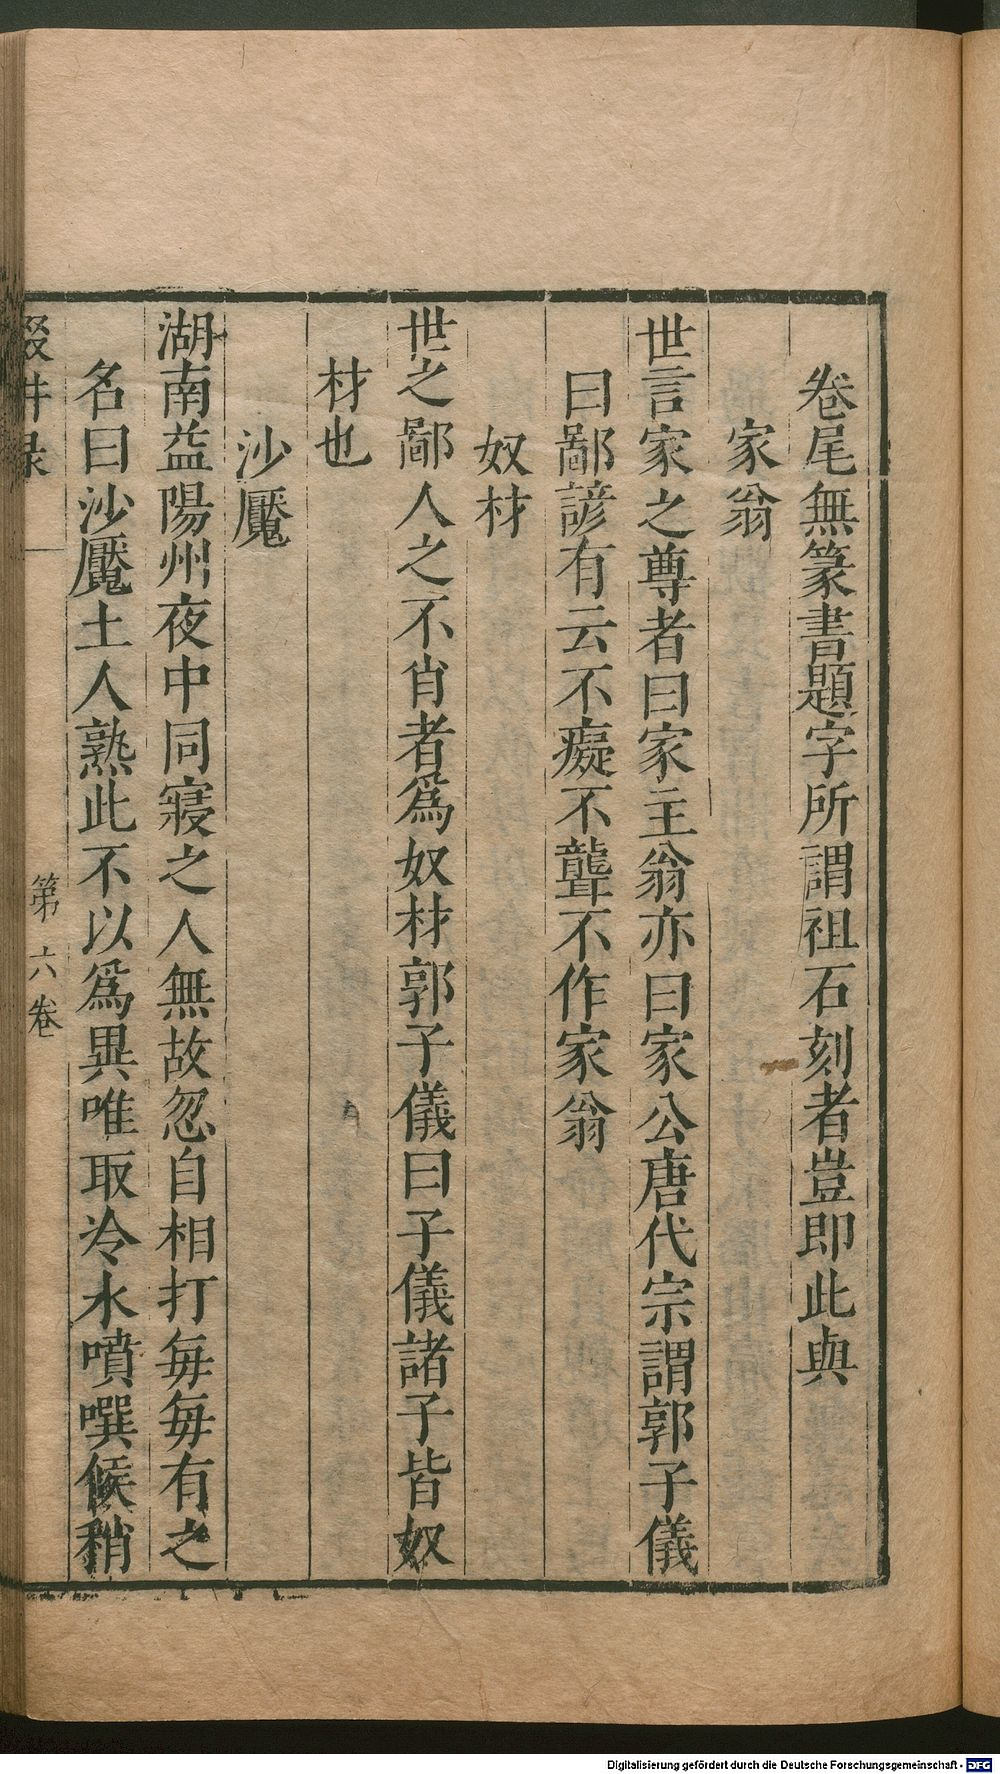 卷尾無篆書題字所謂祖石刻者豈即此與
家翁
世言家之尊者曰家主翁亦曰家公唐代宗謂郭子儀
曰鄙諺有云不癡不聾不作家翁
奴材
世之鄙人之不肖者爲奴材郭子儀曰子儀諸子皆奴
材也
沙魘
湖南益陽州夜中同寢之人無故忽自相打每每有之
名曰沙魘土人熟此不以爲異唯取冷水噴噀候稍
輟耕录 第六卷
Digitalisierung gefördert durch die Deutsche Forschungsgemeinschaft - DFG